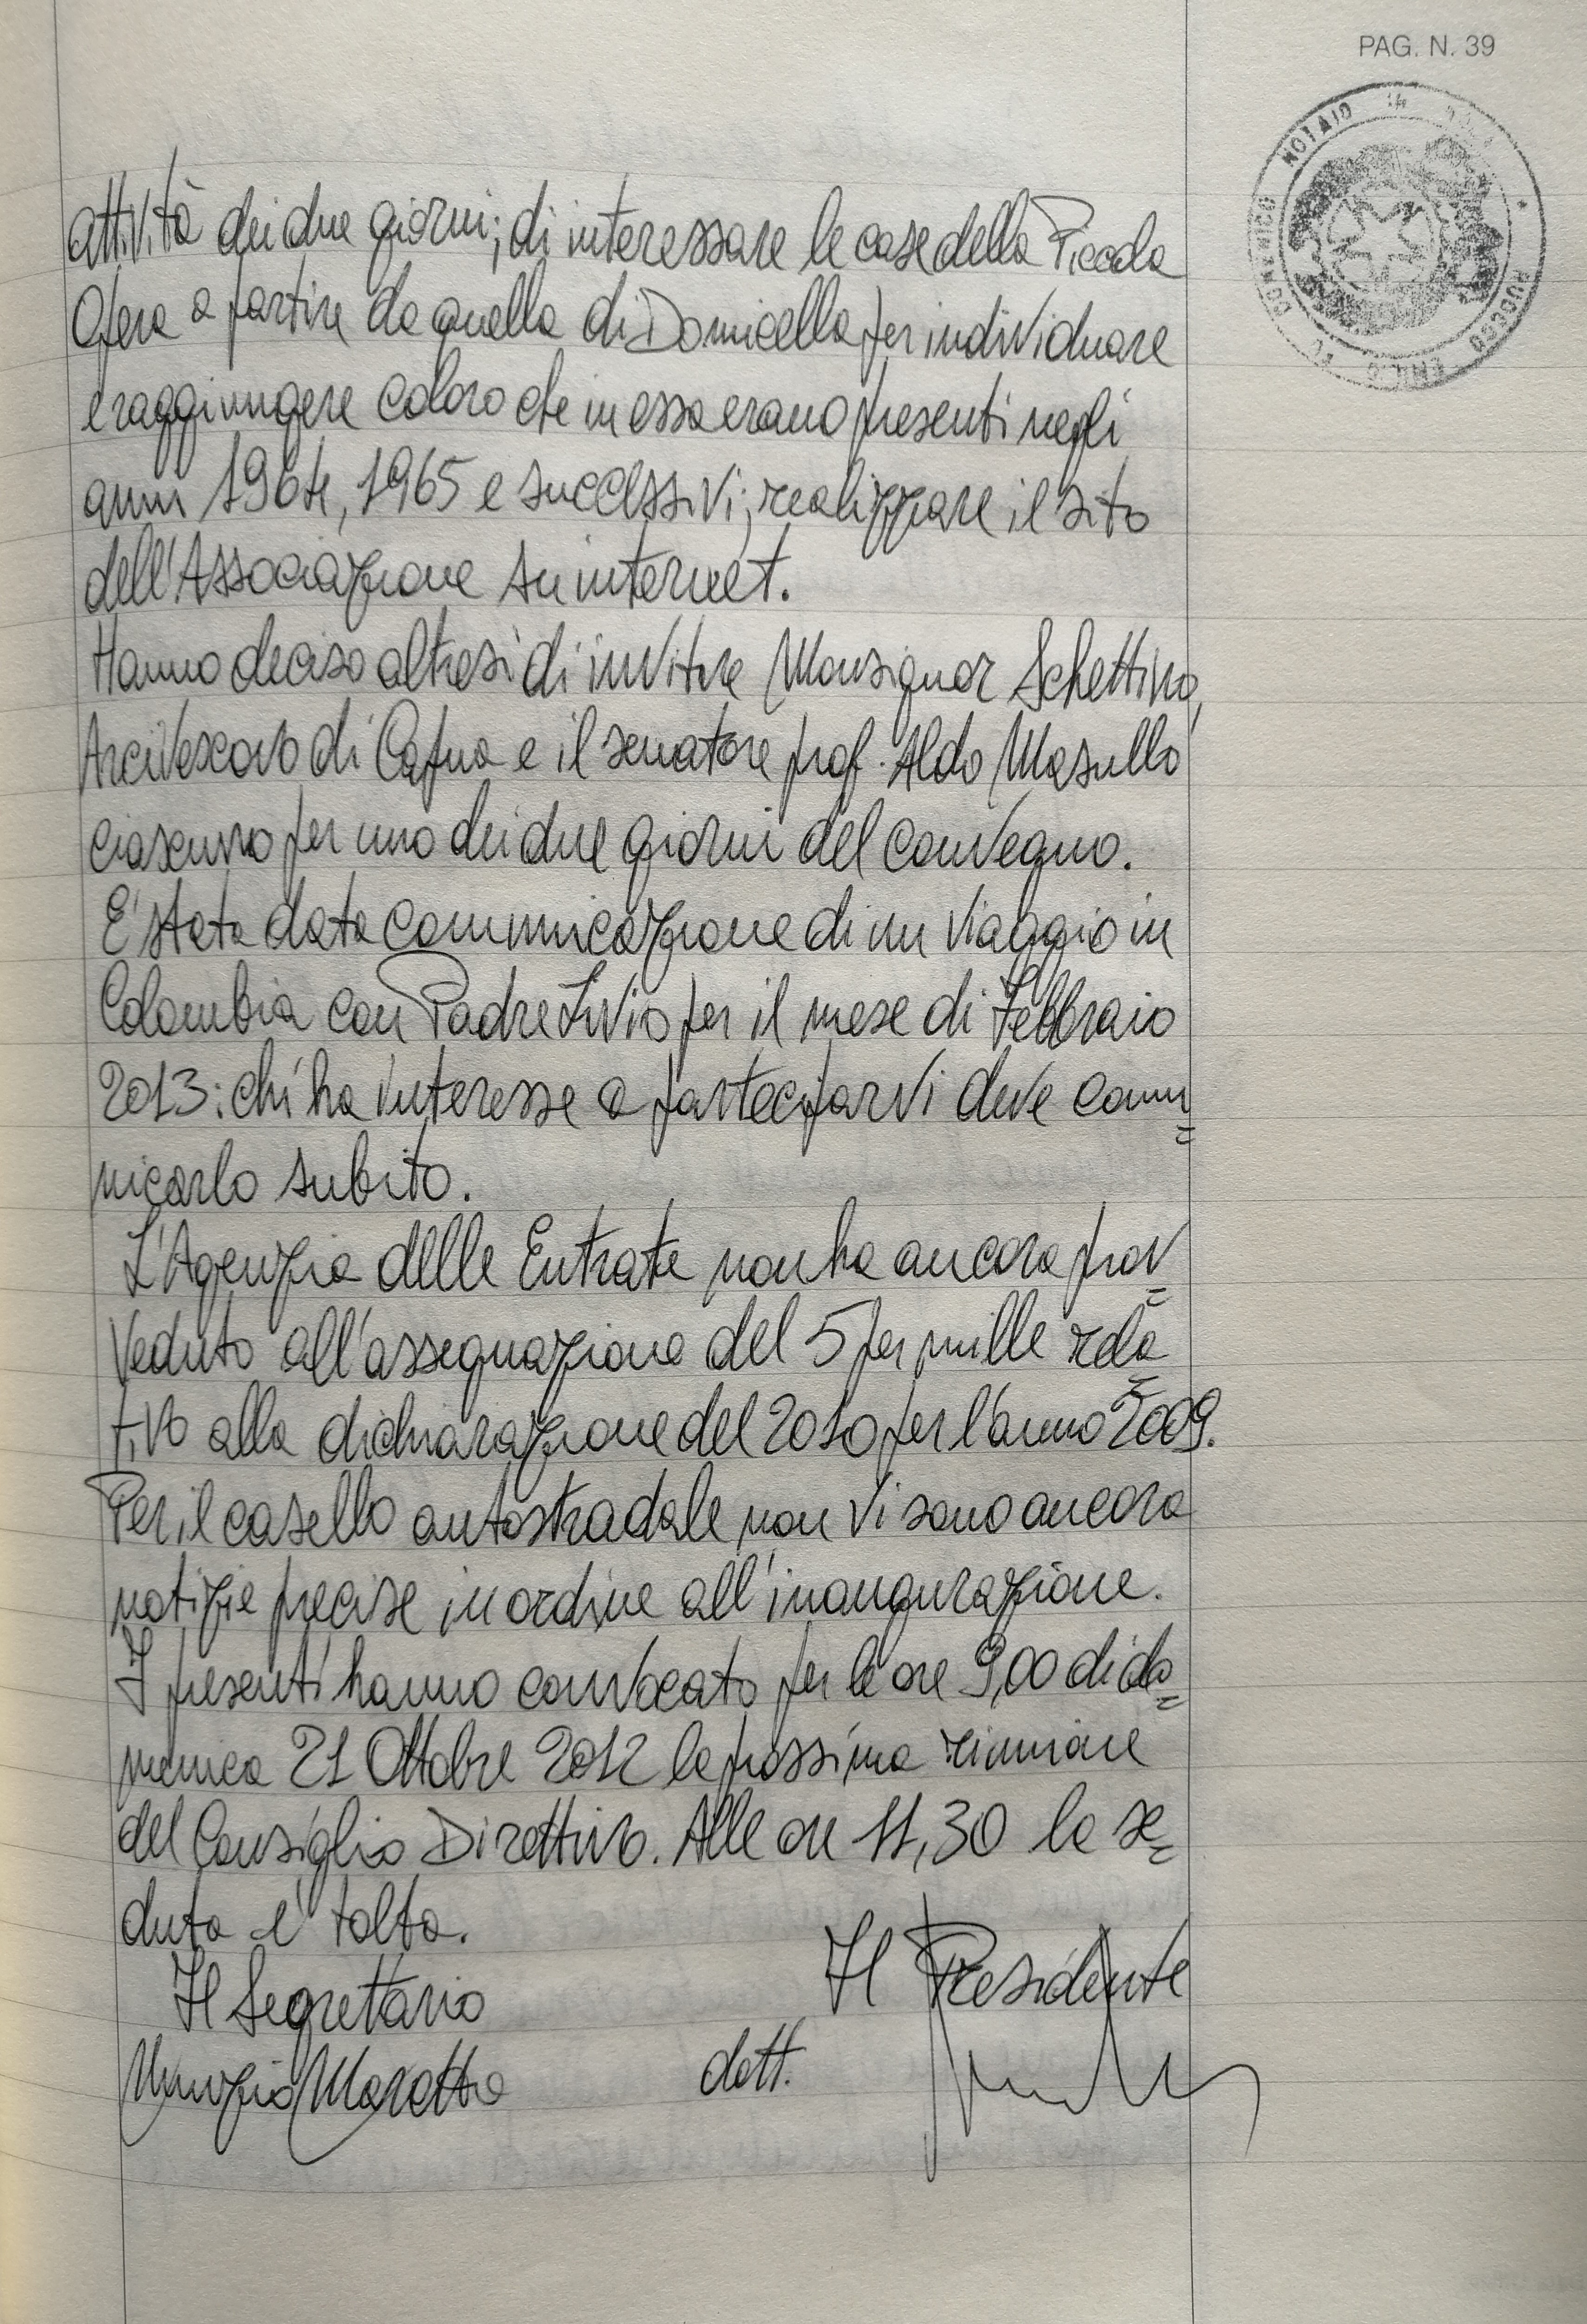 PAG. N. 39
NOTAIO IN
attività dei due giorni; di interessare le case della Piccola
Opera a partire da quella di Domicella per individuare
e raggiungere coloro che in essa erano presenti negli
anni 1964, 1965 e successivi; realizzare il sito
dell'Associazione su internet.
Hanno deciso altresì di invitare Monsignor Schettino,
Arcivescovo di Capua e il senatore prof. Aldo Masullo
ciascuno per uno dei due giorni del convegno.
E' stata data comunicazione di un viaggio in
Colombia con Padre Livio per il mese di Febbraio
2013: chi ha interesse a parteciparvi deve comu=
nicarlo subito.
L'Agenzia delle Entrate non ha ancora prov=
veduto all'assegnazione del 5 per mille rela=
tivo alla dichiarazione del 2010 per l'anno 2009.
Per il casello autostradale non vi sono ancora
notizie precise in ordine all'inaugurazione.
I presenti hanno convocato per le ore 9,00 di do=
menica 21 Ottobre 2012 la prossima riunione
del Consiglio Direttivo. Alle ore 11,30 la se=
duta e' tolta.
Il Segretario Il Presidente
dott.